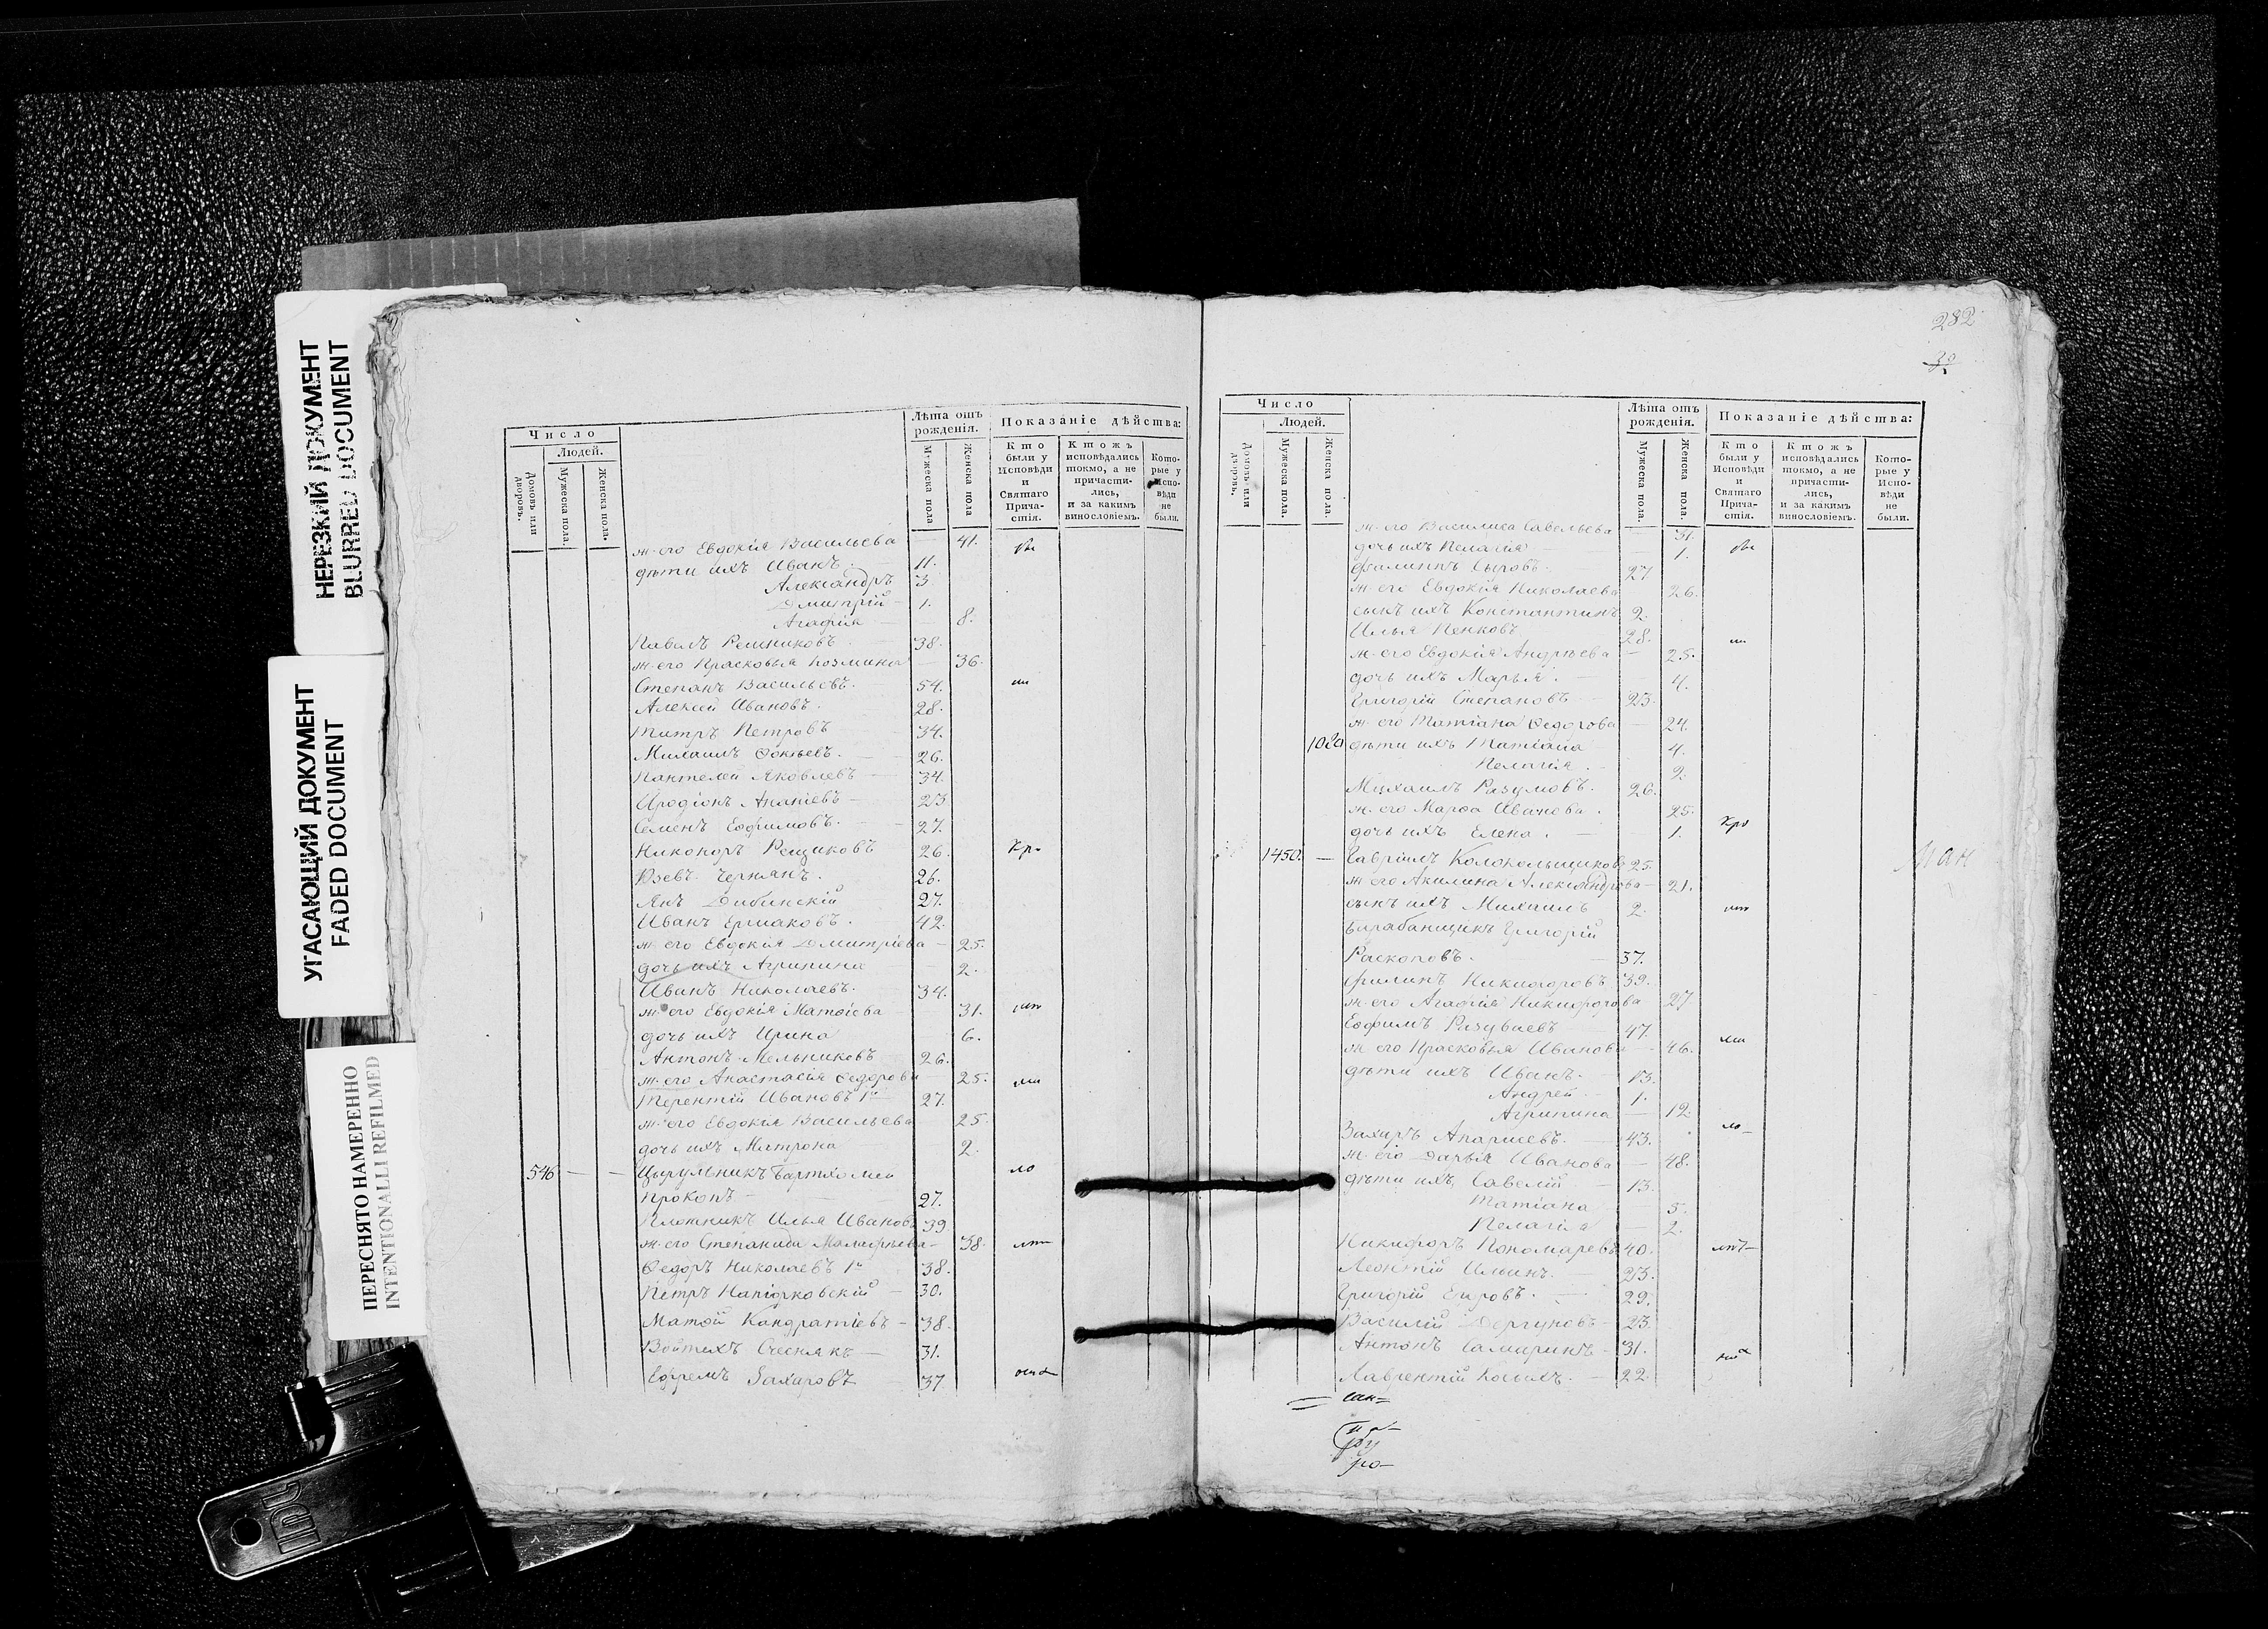 НЕРЕЗКИЙ ДОКУМЕНТ
BLURRED DOCUMENT
УГАСАЮЩИЙ ДОКУМЕНТ
FADED DOCUMENT
ПЕРЕСНЯТО НАМЕРЕННО
INTENTIONALLI REFILMED
Число
Людей.
Домовъ или дворовъ.
Мужеска пола.
Женска пола.
Лѣта отъ рожденія.
Мужеска пола
Женска пола
Показаніе дѣйства:
Кто были у Исповѣди и Святаго Прича-стія.
Ктожъ исповѣдались токмо, а не причасти-лись, и за какимъ винословіемъ.
Кото-рые у Испо-вѣди не были.
ж. его Евдокія Васильева — 41.
дѣти ихъ Иванъ. — 11.
Александръ 3
Дмитрій — 1.
Агафія — 8.
Павелъ Решниковъ — 38.
ж. его Прасковья Козмина — 36.
Степанъ Васильевъ. — 54.
Алексѣй Ивановъ. 28.
Титъ Петровъ 34.
Михаилъ 26.
Пантелей Яковлевъ — 34.
Иродіонъ Ананіевъ — 23
Семенъ Ефимовъ. — 27.
Никоноръ Рещиковъ 26. Кро
Юзевъ 26.
Янъ Дибинскій 27.
Иванъ Ермаковъ. 42.
ж. его Евдокія Дмитріева — 25.
дочь ихъ Агрипина — 2.
Иванъ Николаевъ. 34.
ж. его Евдокія Матѳіева 31.
дочь ихъ Ирина 6.
Антонъ Мельниковъ 26.
ж. его Анастасія Ѳедорова 25.
Терентій Ивановъ 1й 27.
ж. его Евдокія Васильева 25.
дочь ихъ Матрона 2.
546 — — Цырульникъ Бартхомей
Прокопъ — 27.
Плотникъ Илья Ивановъ 39.
ж. его Степанида — 38.
Ѳедоръ Николаевъ 1й 38.
Петръ Напіорковскій — 30.
Матѳій Кондратіевъ — 38.
Войтехъ Счеснякъ — 31.
Ефремъ Захаровъ — 37
282
Число
Людей.
Домовъ или дворовъ.
Мужеска пола.
Женска пола.
Лѣта отъ рожденія.
Мужеска пола.
Женска пола.
Показаніе дѣйства:
Кто были у Исповѣди и Святаго Прича-стія.
Ктожъ исповѣдались токмо, а не причасти-лись, и за какимъ винословіемъ.
Кото-рые у Испо-вѣди не были.
ж. его Василиса Савельева — 31.
дочь ихъ Пелагія — 1.
Филиппъ 27
ж. его Евдокія Николаева 26.
сынъ ихъ Константинъ 2.
Илья Пенковъ 28.
ж. его Евдокія Андрѣева — 25.
дочь ихъ Марья. — 4.
Григорій Степановъ — 23.
ж. его Татіана Ѳедорова — 24.
1020 дѣти ихъ Татіана 4.
Пелагія. 2.
Михаилъ Разумовъ. 26.
ж. его Марѳа Иванова. 25.
дочь ихъ Елена. — 1. Кро
1450. — Гавріилъ Колокольщиковъ 25.
ж. его Акилина Александрова — 21.
сынъ ихъ Михаилъ 2.
Барабанщикъ Григорій
Расколовъ. — 37.
Филипъ Никифоровъ 39.
ж. его Агафія Никифорова 27
Ефимъ Разуваевъ 47.
ж его Прасковья Иванова — 46.
дѣти ихъ Иванъ. — 13.
Андрей. — 1.
Агрипина — 12.
Захаръ — 43.
ж. его Дарья Иванова — 48.
дѣти ихъ Савелій — 13.
Татіана — 5.
Пелагія — 2.
Никифоръ Пономаревъ 40.
Леонтій Ильинъ. — 23.
Григорій Егоровъ. — 29.
Василій Дергуновъ — 23.
Антонъ Самаринъ — 31.
Лаврентій Косыхъ. — 22.